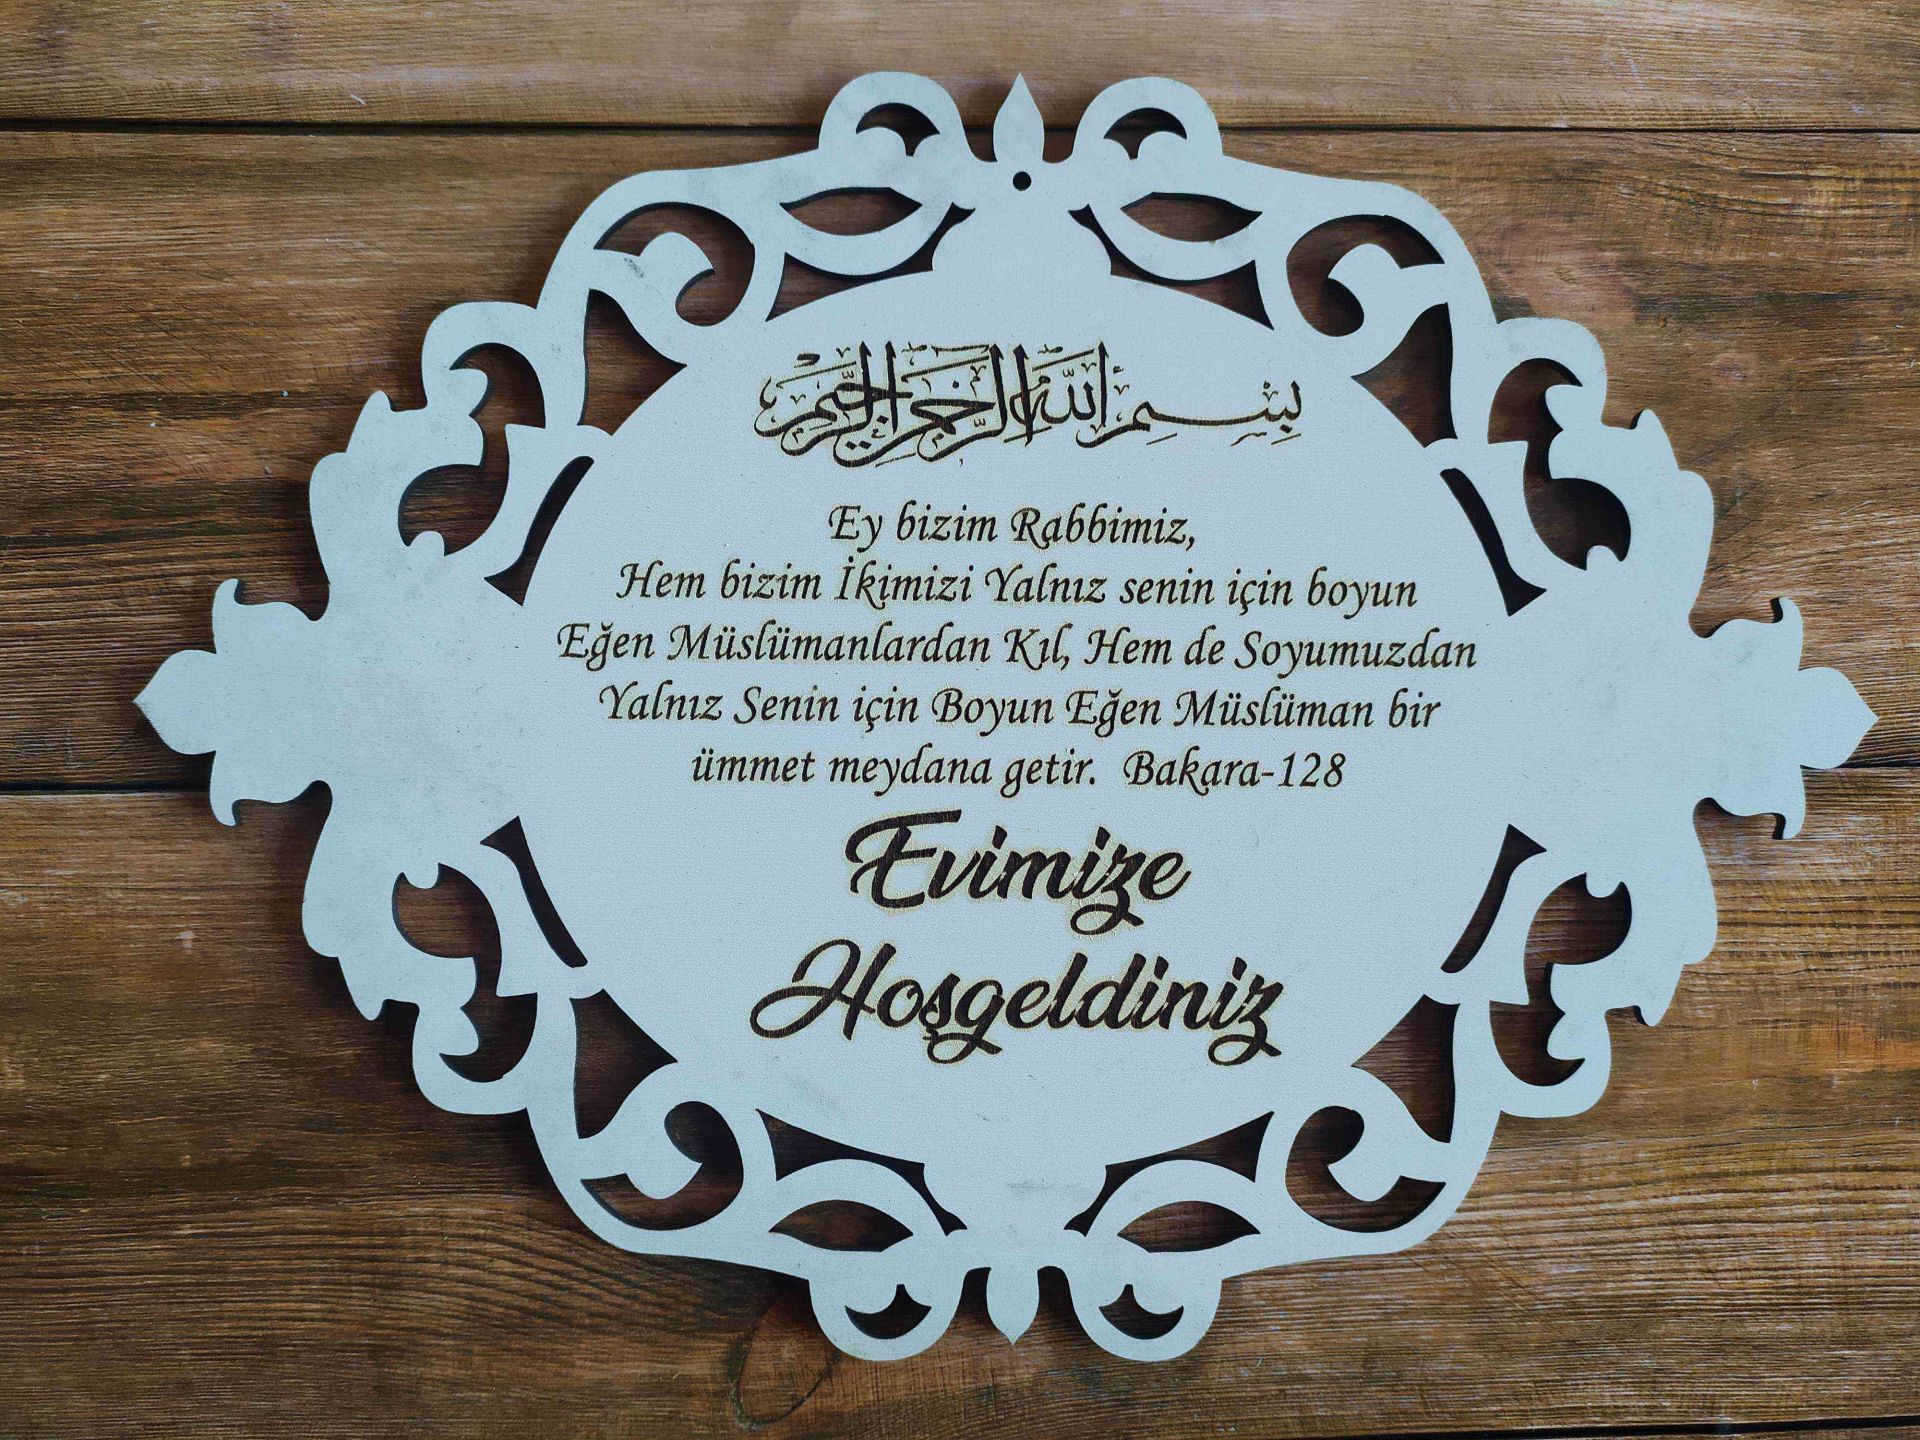 بِسْمِ اللَّهِ الرَّحْمَٰنِ الرَّحِيمِ
Ey bizim Rabbimiz,
Hem bizim İkimizi Yalnız senin için boyun
Eğen Müslümanlardan Kıl, Hem de Soyumuzdan
Yalnız Senin için Boyun Eğen Müslüman bir
ümmet meydana getir. Bakara-128
Evimize
Hoşgeldiniz